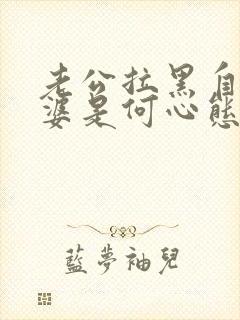 老公拉黑自
婆是何心態
藍夢袖兒